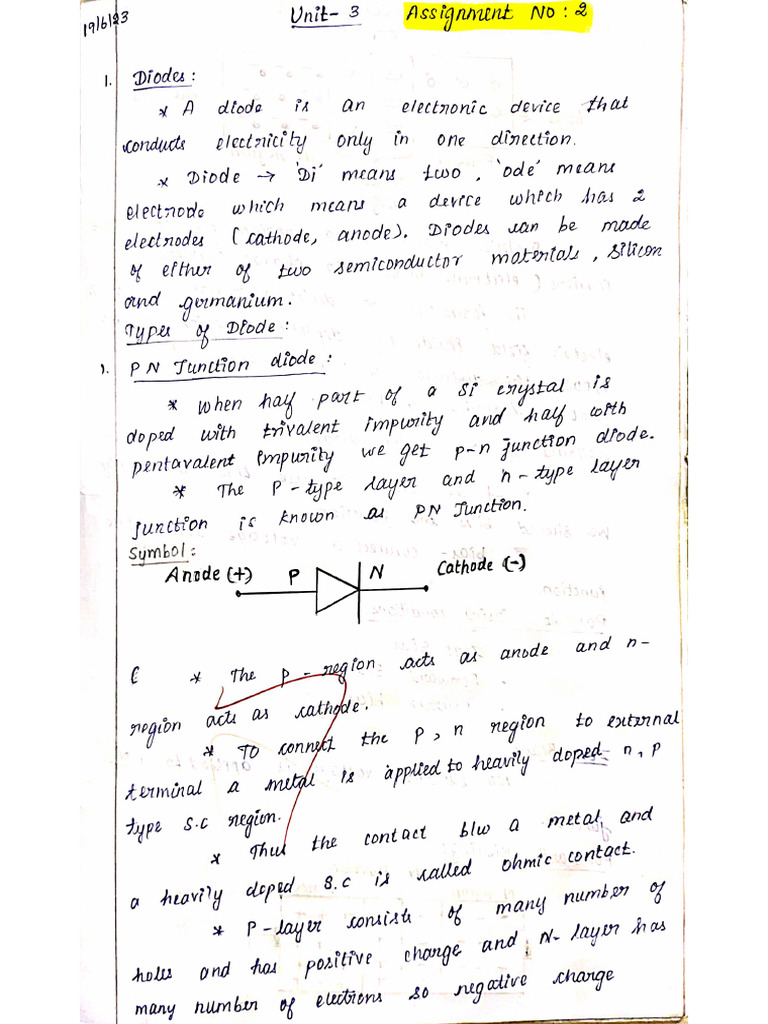 19/6/23
Unit- 3
Assignment No: 2
1. Diodes:
* A diode is an electronic device that
conducts electricity only in one direction.
* Diode → 'Di' means two, 'ode' means
electrode which means a device which has 2
electrodes (cathode, anode). Diodes can be made
of either of two semiconductor materials, silicon
and germanium.
Types of Diode:
1. PN Junction diode:
* when half part of a Si crystal is
doped with trivalent impurity and half with
pentavalent impurity we get p-n junction diode.
* The P-type layer and n-type layer
junction is known as PN Junction.
Symbol:
Anode (+) P N Cathode (-)
* The p-region acts as anode and n-
region acts as cathode.
* To connect the P, n region to external
terminal a metal is applied to heavily doped n, p
type S.C region.
* Thus the contact b/w a metal and
a heavily doped S.C is called ohmic contact.
* P-layer consists of many number of
holes and has positive charge and N-layer has
many number of electrons so negative charge